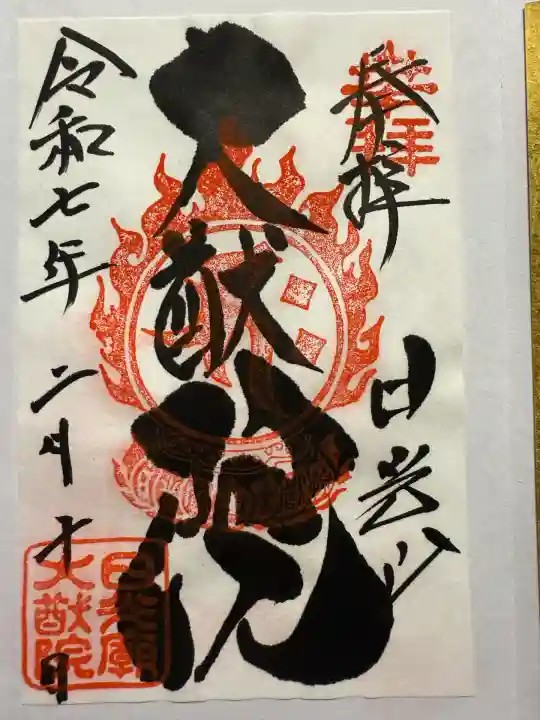 奉拝 日光山
大猷院
令和七年二月 日
日光廟
大猷院